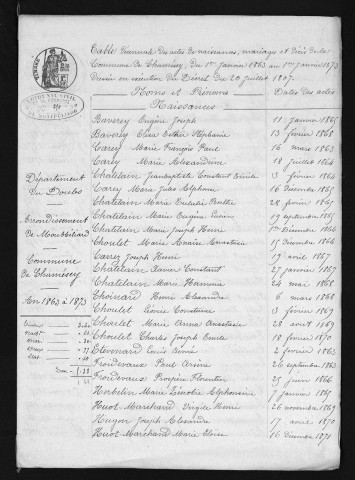 Table Decennale des actes de naissances, mariages et Décès de la
Commune de Chamesey, du 1er Janvier 1863 au 1er Janvier 1873
Dressée en exécution du Décret du 20 Juillet 1807.
Noms et Prénoms Dates des actes
Naissances
Département
du Doubs
Arrondissement
de Montbéliard
Commune
de Chamésey
An 1863 à 1873
Baverey Eugène Joseph 11 Janvier 1865
Baverey Elise Esther Stéphanie 13 février 1868
Carey Marie François Paul 16 mars 1863
Carey Marie Alexandrine 18 Juillet 1864
Chatelain Jean Baptiste Constant Emile 3 février 1864
Carey Marie Jules Alphonse 16 Décembre 1865
Chatelain Marie Eulalie Berthe 28 février 1867
Chatelain Marie Eugène 19 septembre 1865
Chatelain Marie Joseph Henri 1er Décembre 1866
Choulet Marie Anaïse Anastasie 15 Décembre 1866
Carrey Joseph Henri 19 avril 1867
Chatelain Xavier Constant 27 janvier 1869
Chatelain Marie 24 mai 1868
Choinard Henri Alexandre 6 mars 1868
Choulet 3 février 1869
Choulet Marie Anna Anastasie 28 avril 1869
Choulet Charles Joseph Emile 18 février 1870
Etevenard Louis 2 février 1863
Froidevaux Paul Arsène 26 septembre 1863
Froidevaux Prospère Florentin 25 juin 1866
Marie Zénobie Alphonsine 7 janvier 1867
Huot-Marchand Virgile Henri 26 novembre 1869
Hugon Joseph Alexandre 17 avril 1870
Huot Marchand Marie Eloise 16 Décembre 1871